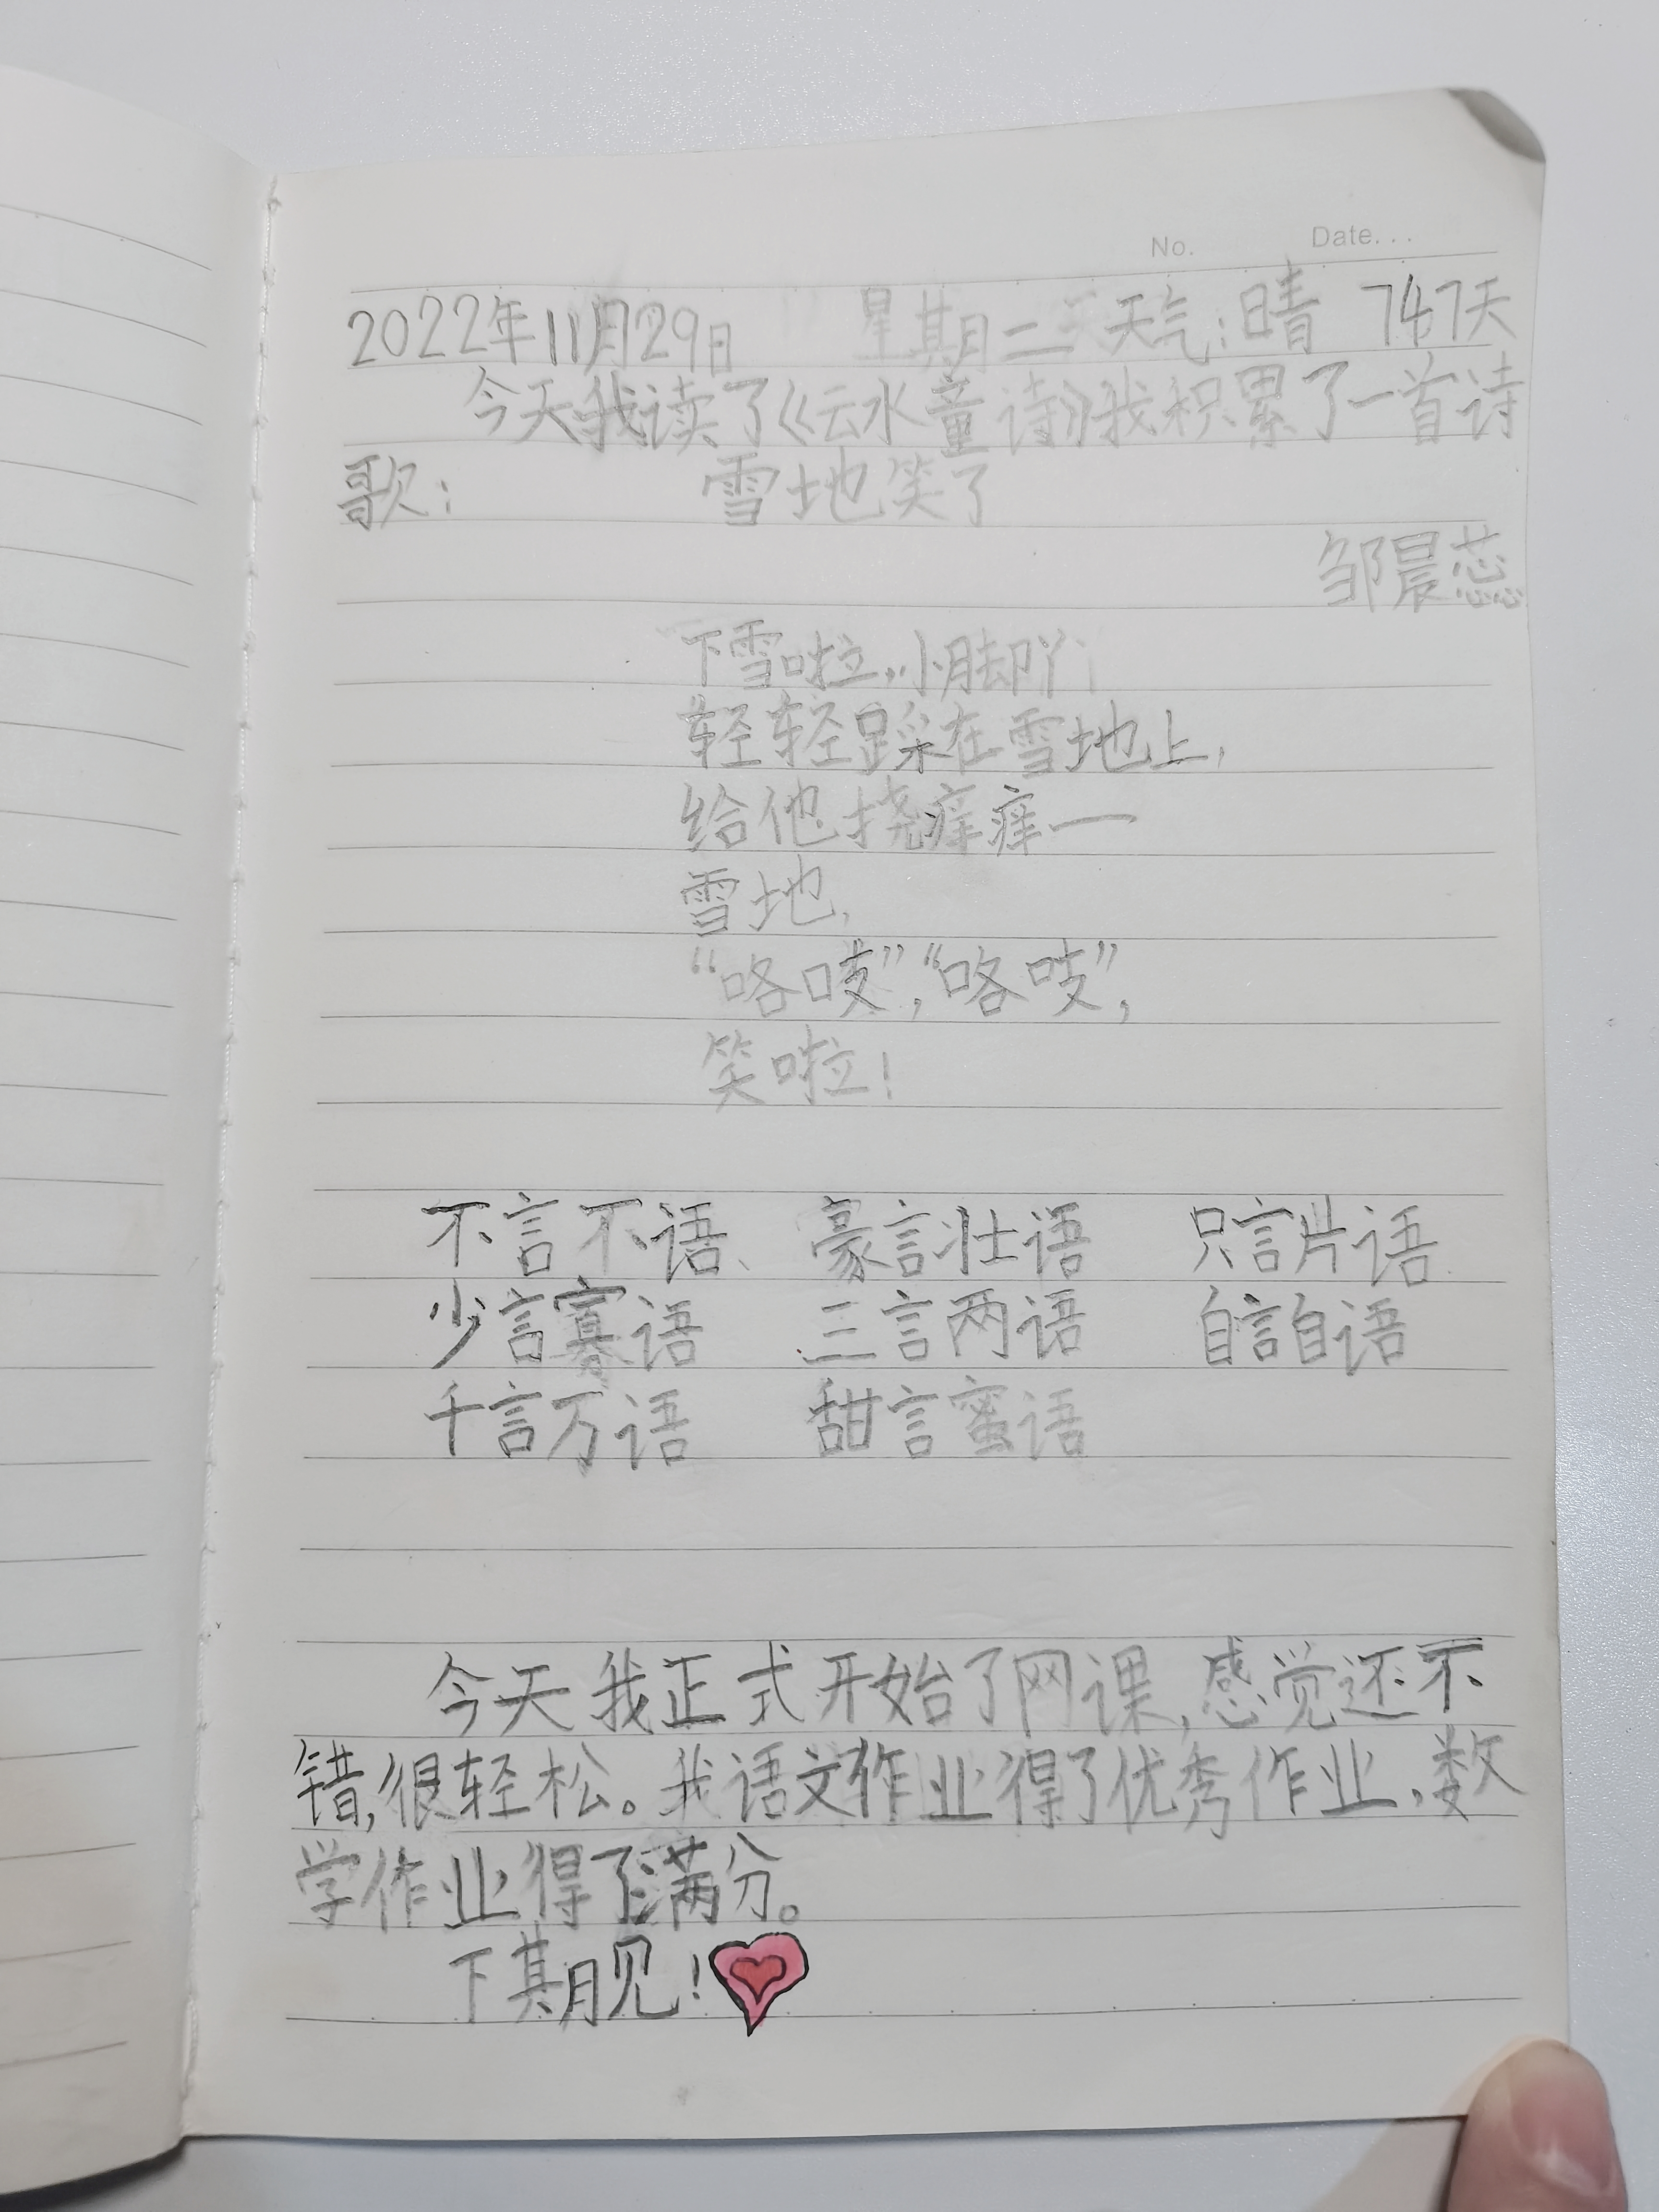 No. Date...
2022年11月29日 星期二 天气:晴 747天
今天我读了《云水童诗》我积累了一首诗
歌: 雪地笑了
邹晨蕊
下雪啦,小脚丫
轻轻踩在雪地上,
给他挠痒痒一
雪地,
“咯吱”,“咯吱”,
笑啦!
不言不语、 豪言壮语 只言片语
少言寡语 三言两语 自言自语
千言万语 甜言蜜语
今天我正式开始了网课,感觉还不
错,很轻松。我语文作业得了优秀作业,数
学作业得了满分。
下期见!